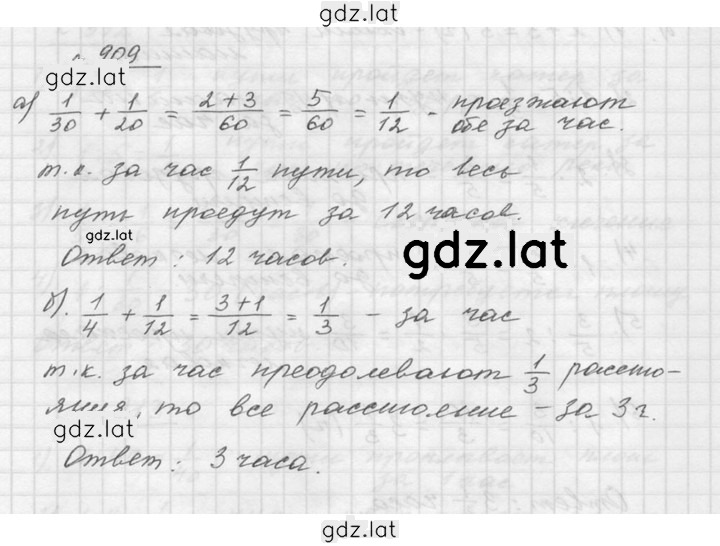 gdz.lat
№ 909
gdz.lat
а) 1/30 + 1/20 = 2+3/60 = 5/60 = 1/12 - проезжают
обе за час.
т.к. за час 1/12 пути, то весь
путь проедут за 12 часов.
gdz.lat
Ответ: 12 часов.
gdz.lat
б). 1/4 + 1/12 = 3+1/12 = 1/3 - за час
т.к. за час преодолевают 1/3 рассто-
яния, то все расстояние - за 3 г.
gdz.lat
Ответ: 3 часа.
gdz.lat